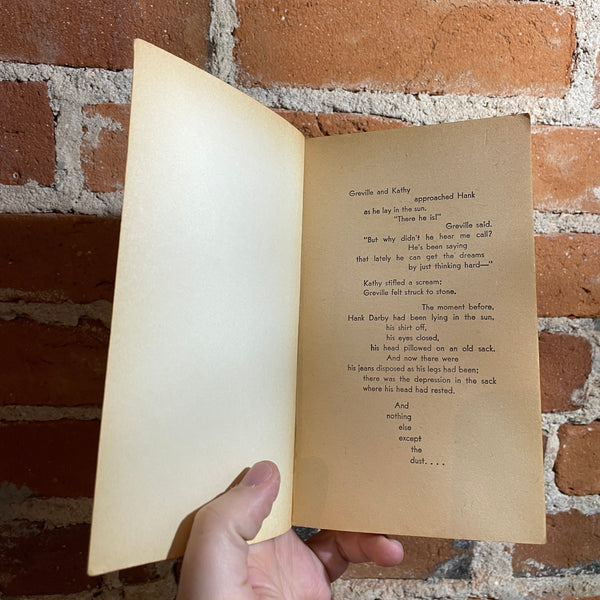 Greville and Kathy
approached Hank
as he lay in the sun.
"There he is!"
Greville said.
"But why didn't he hear me call?
He's been saying
that lately he can get the dreams
by just thinking hard—"
Kathy stifled a scream;
Greville felt struck to stone.
The moment before,
Hank Darby had been lying in the sun,
his shirt off,
his eyes closed,
his head pillowed on an old sack.
And now there were
his jeans disposed as his legs had been;
there was the depression in the sack
where his head had rested.
And
nothing
else
except
the
dust. . . .